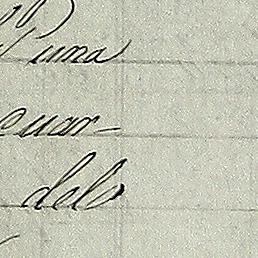 Puna
cuar-
del